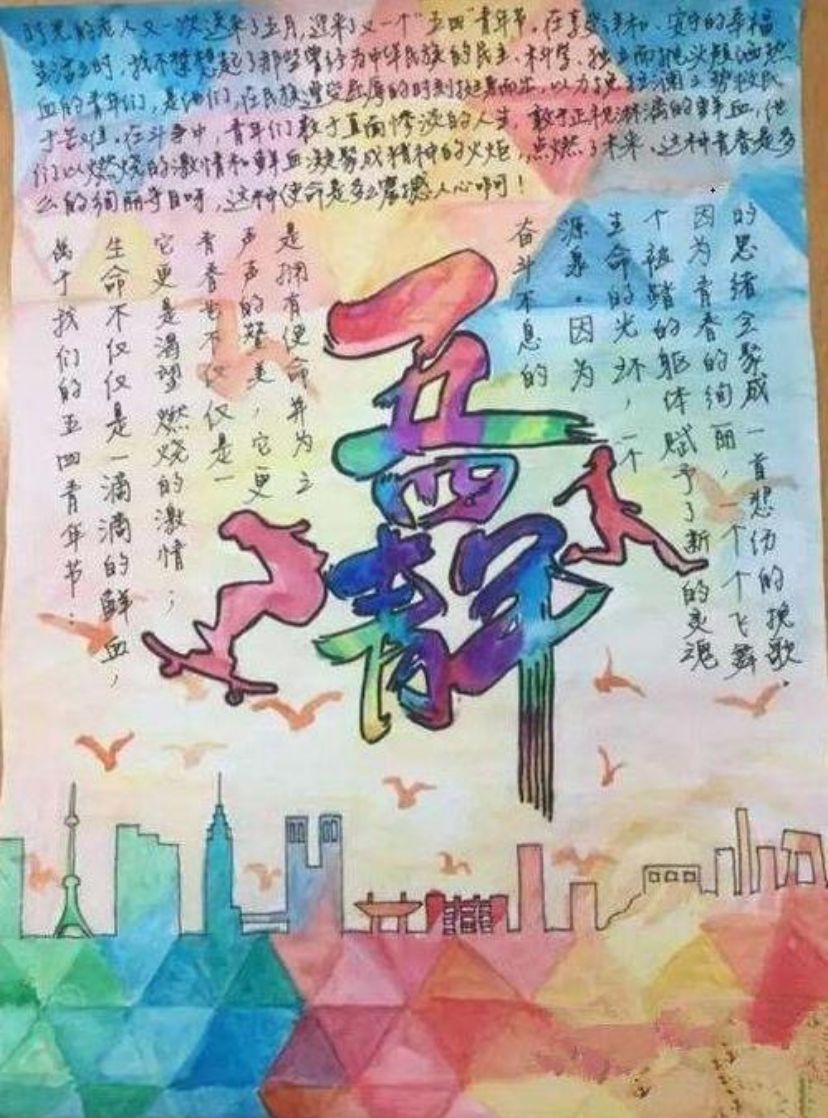 时光的老人又一次送来了五月,迎来了又一个"五四"青年节。在享受详和、安宁的幸福
生活之时,我不禁想起了那些曾经为中华民族的民主、科学、独立而抛头颅洒热
血的青年们,是他们,在民族遭受屈辱的时刻挺身而出,以力挽狂澜之势救民
于苦难。在斗争中,青年们敢于直面惨淡的人生,敢于正视淋漓的鲜血,他
们以燃烧的激情和鲜血凝聚成精神的火炬,点燃了未来。这种青春是多
么的绚丽夺目呀,这种使命是多么震撼人心啊!
属于我们的五四青年节:
生命不仅仅是一滴滴的鲜血,
它更是渴望燃烧的激情;
青春也不仅仅是一
声声的赞美,它更
是拥有使命并为之
五四
青年
奋斗不息的
源泉。因为
生命的光环,一个
个被的躯体赋予了新的灵魂
因为青春的绚丽,一个个飞舞
的思绪会聚成一首悲伤的挽歌。